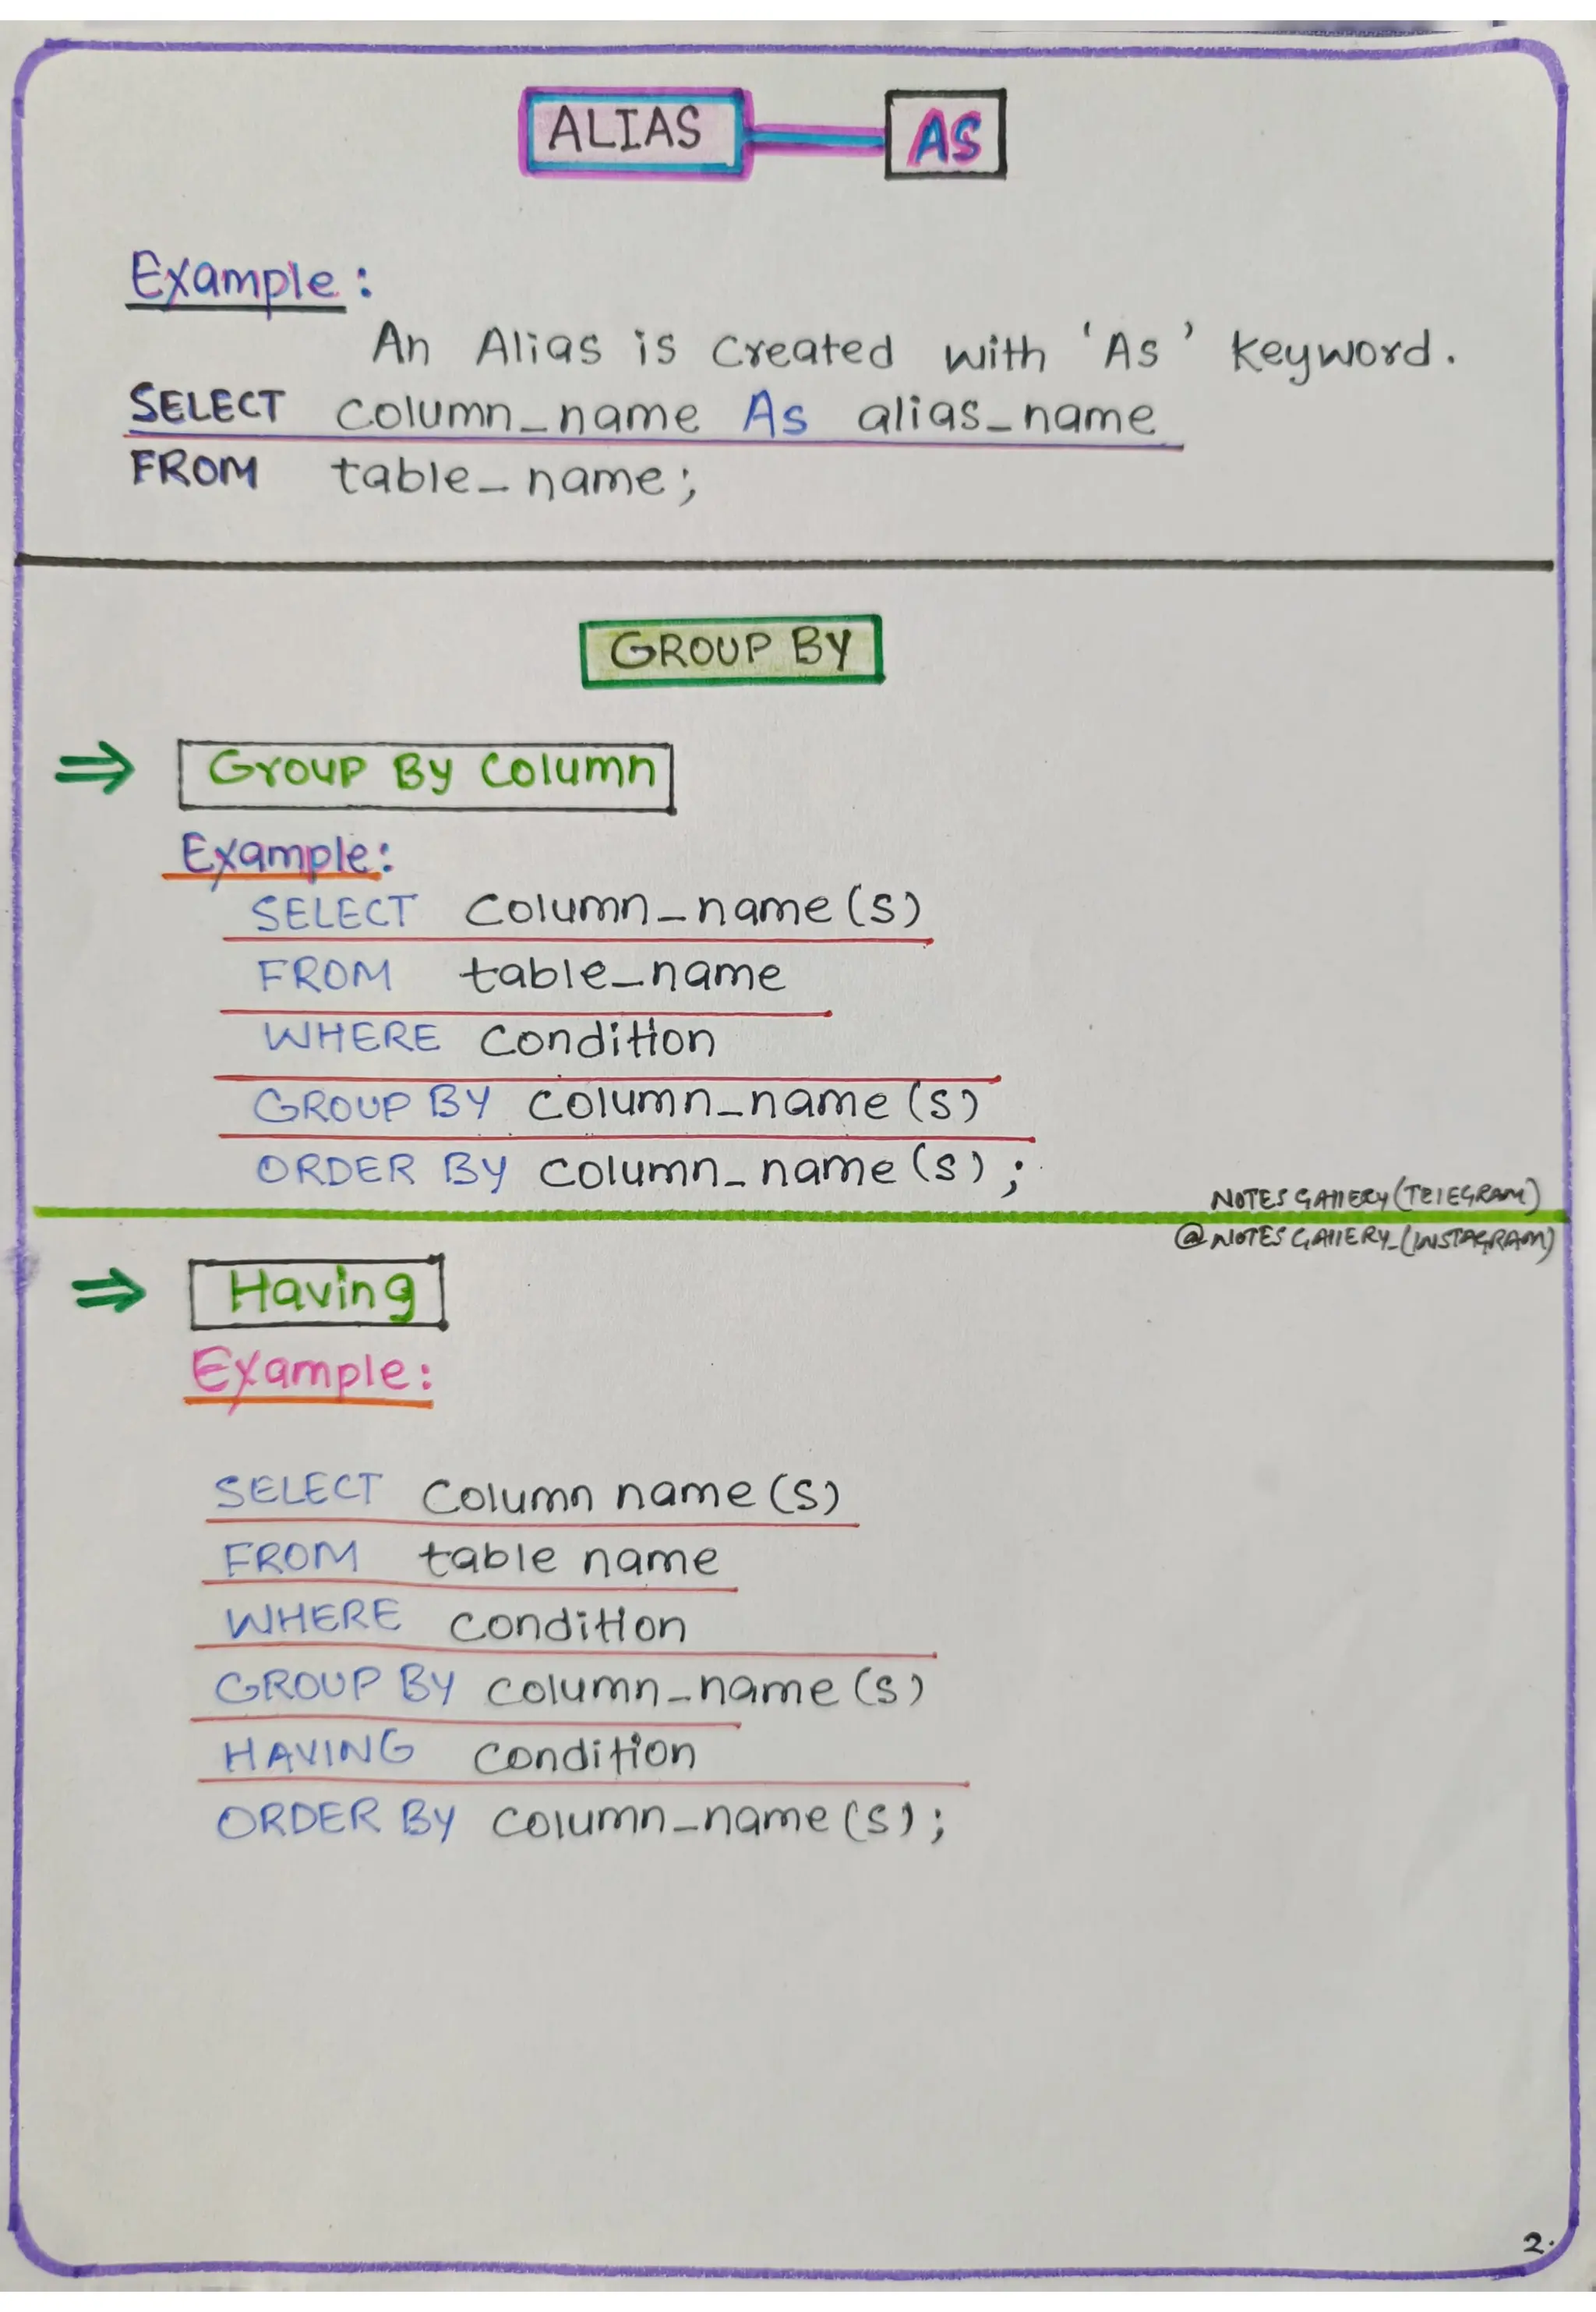 ALIAS AS
Example:
An Alias is created with 'As' keyword.
SELECT column_name As alias_name
FROM table_name;
GROUP BY
⇒ Group By Column
Example:
SELECT Column_name(s)
FROM table_name
WHERE Condition
GROUP BY column_name(s)
ORDER BY column_name(s);
NOTES GALLERY (TELEGRAM)
@NOTES GALLERY_(INSTAGRAM)
⇒ Having
Example:
SELECT Column name(s)
FROM table name
WHERE condition
GROUP BY column_name(s)
HAVING condition
ORDER BY column_name(s);
2.